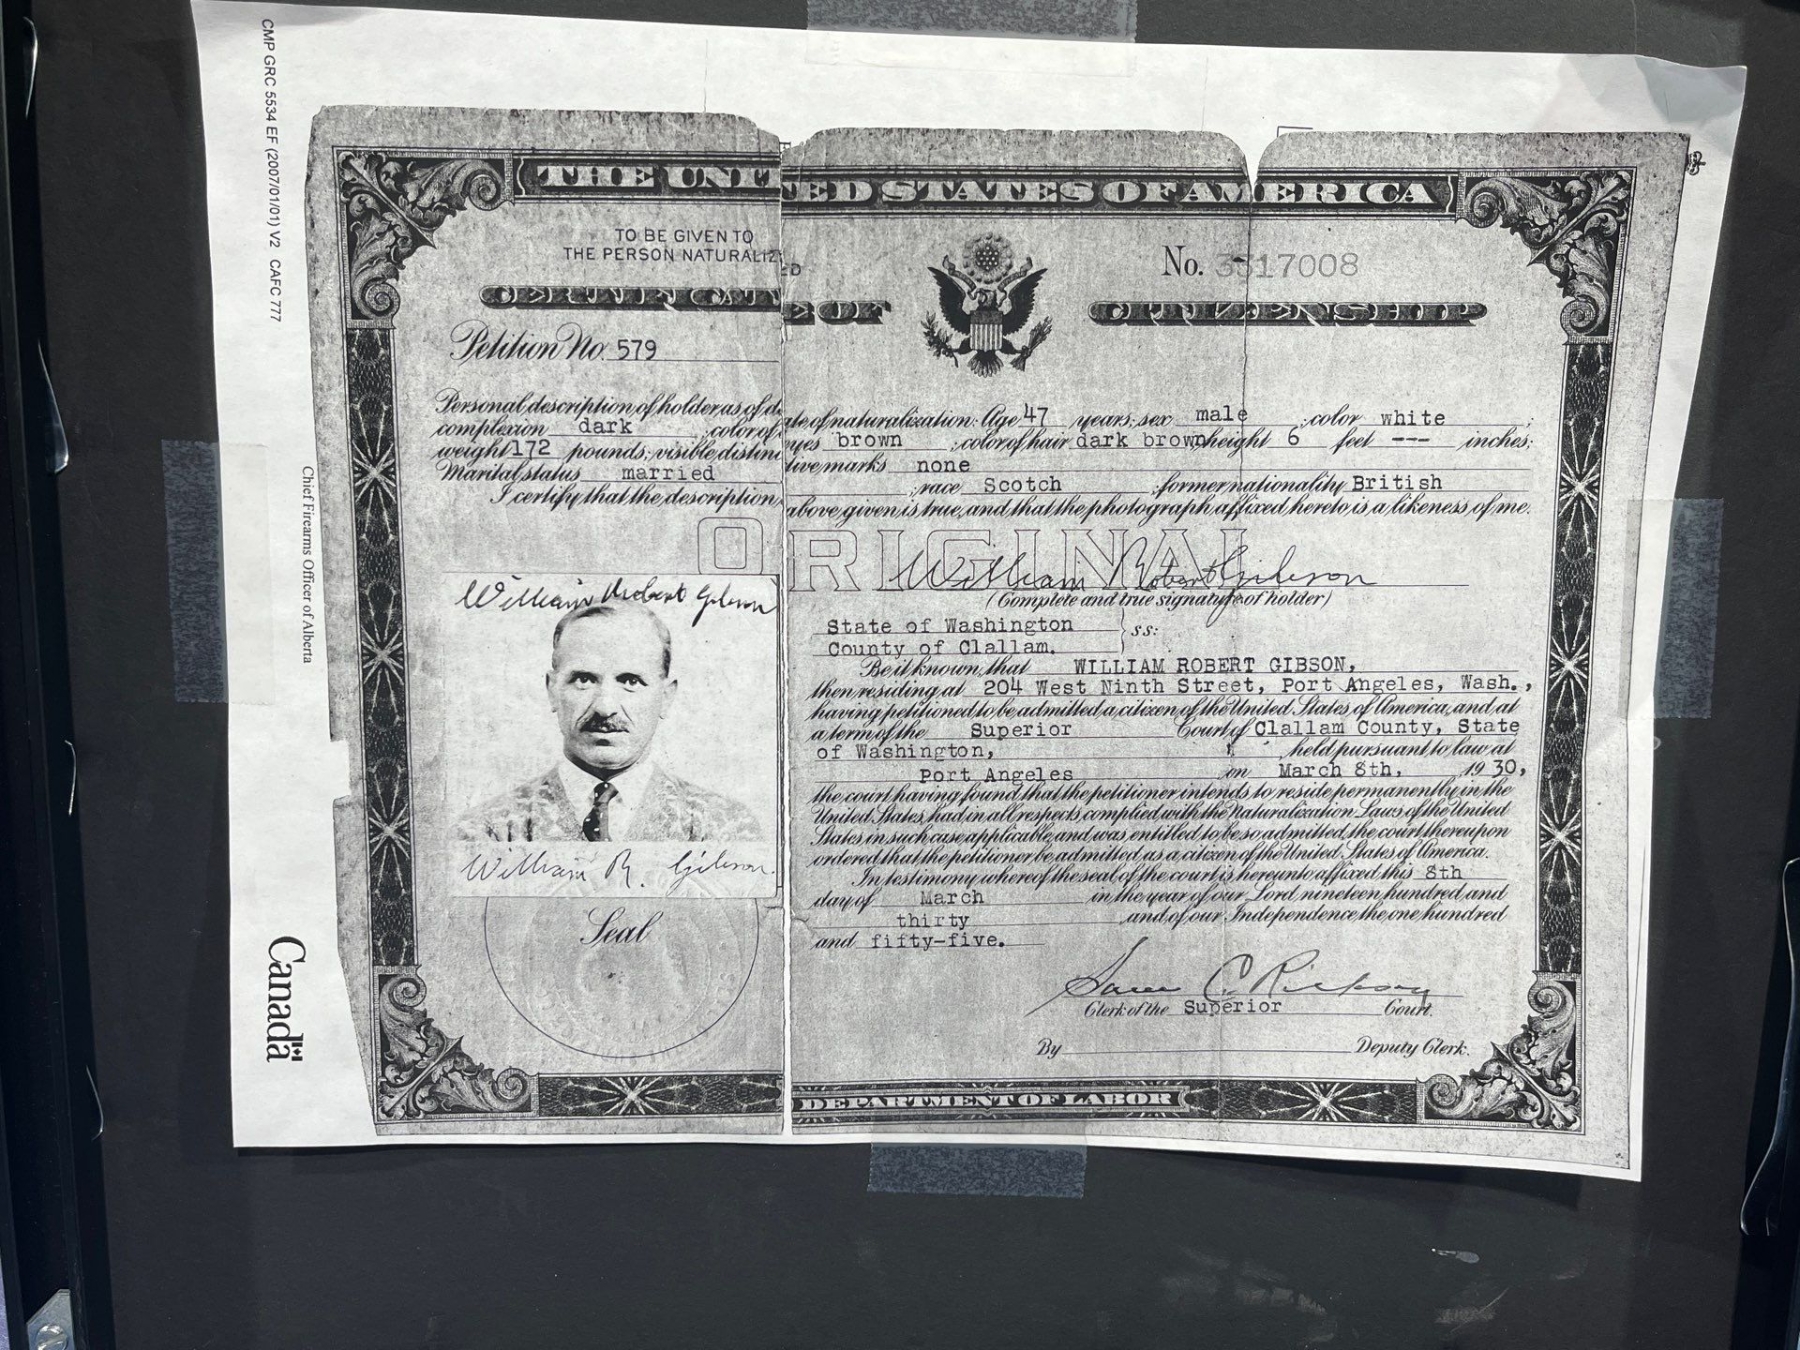 CMP GRC 5534 EF (2007/01/01) V2 CAFC 777
Chief Firearms Officer of Alberta
Canada
THE UNITED STATES OF AMERICA
TO BE GIVEN TO
THE PERSON NATURALIZED
No. 3317008
CERTIFICATE OF CITIZENSHIP
Petition No. 579
Personal description of holder as of date of naturalization: Age 47 years; sex male ; color white ;
complexion dark ; color of eyes brown ; color of hair dark brown; height 6 feet --- inches;
weight 172 pounds; visible distinctive marks none
Marital status married ; race Scotch ; former nationality British
I certify that the description above given is true, and that the photograph affixed hereto is a likeness of me.
ORIGINAL
William Robert Gibson
(Complete and true signature of holder)
William Robert Gibson
William R. Gibson.
Seal
State of Washington
County of Clallam. } ss:
Be it known, that WILLIAM ROBERT GIBSON,
then residing at 204 West Ninth Street, Port Angeles, Wash.,
having petitioned to be admitted a citizen of the United States of America, and at
a term of the Superior Court of Clallam County, State
of Washington, held pursuant to law at
Port Angeles on March 8th, 1930,
the court having found that the petitioner intends to reside permanently in the
United States, had in all respects complied with the Naturalization Laws of the United
States in such case applicable, and was entitled to be so admitted, the court thereupon
ordered that the petitioner be admitted as a citizen of the United States of America.
In testimony whereof the seal of the court is hereunto affixed this 8th
day of March in the year of our Lord nineteen hundred and
thirty and of our Independence the one hundred
and fifty-five.
C.
Clerk of the Superior Court.
By Deputy Clerk.
DEPARTMENT OF LABOR